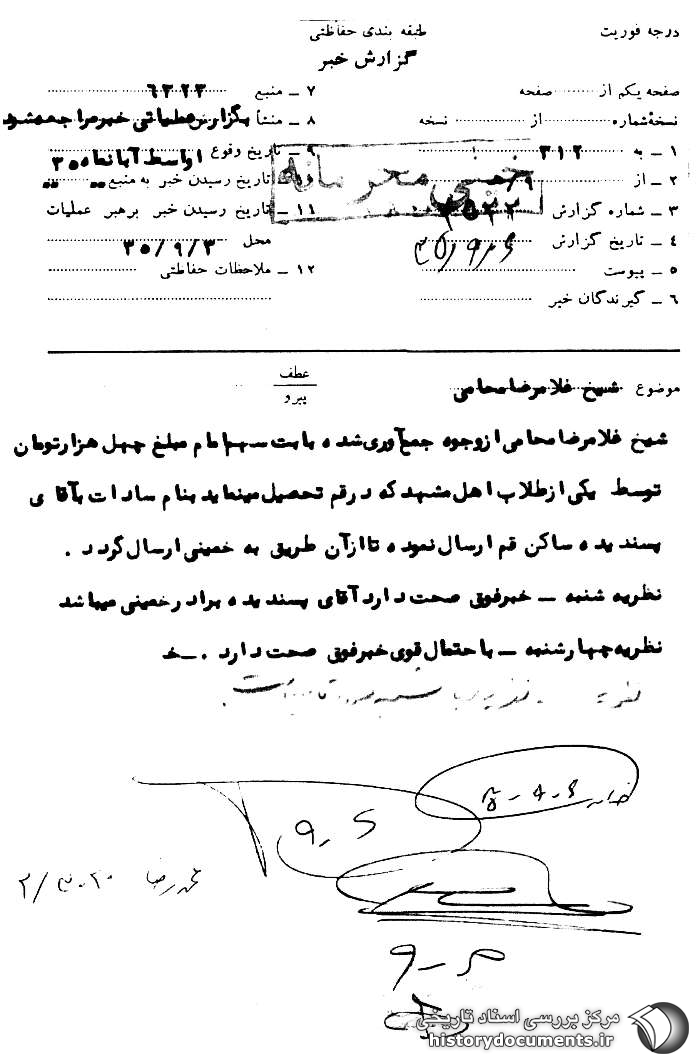 درجه فوریت
طبقه بندی حفاظتی
گزارش خبر
صفحه یکم از ......... صفحه
نسخهٔ شماره ......... از ......... نسخه
۱ ـ به ۳۱۲
۲ ـ از ۹
۳ ـ شماره گزارش
۴ ـ تاریخ گزارش
۵ ـ پیوست
۶ ـ گیرندگان خبر
۷ ـ منبع ۶۳۲۳
۸ ـ منشأ بگزارش عملیاتی خبر مراجعه شود
۹ ـ تاریخ وقوع اواسط آبانماه ۳۵
۱۰ ـ تاریخ رسیدن خبر به منبع
۱۱ ـ تاریخ رسیدن خبر برهبر عملیات
محل ۳۵/۹/۳
۱۲ ـ ملاحظات حفاظتی
خیلی محرمانه
موضوع شیخ غلامرضا محامی
عطف
پیرو
شیخ غلامرضا محامی از وجوه جمع‌آوری شده بابت سهم امام مبلغ چهل هزار تومان
توسط یکی از طلاب اهل مشهد که در قم تحصیل مینماید بنام سادات بآقای
پسندیده ساکن قم ارسال نموده تا از آن طریق به خمینی ارسال گردد .
نظریه شنبه ـ خبر فوق صحت دارد آقای پسندیده برادر خمینی میباشد
نظریه چهارشنبه ـ باحتمال قوی خبر فوق صحت دارد . ـ خ
۹ـ۶
مرکز بررسی اسناد تاریخی
historydocuments.ir